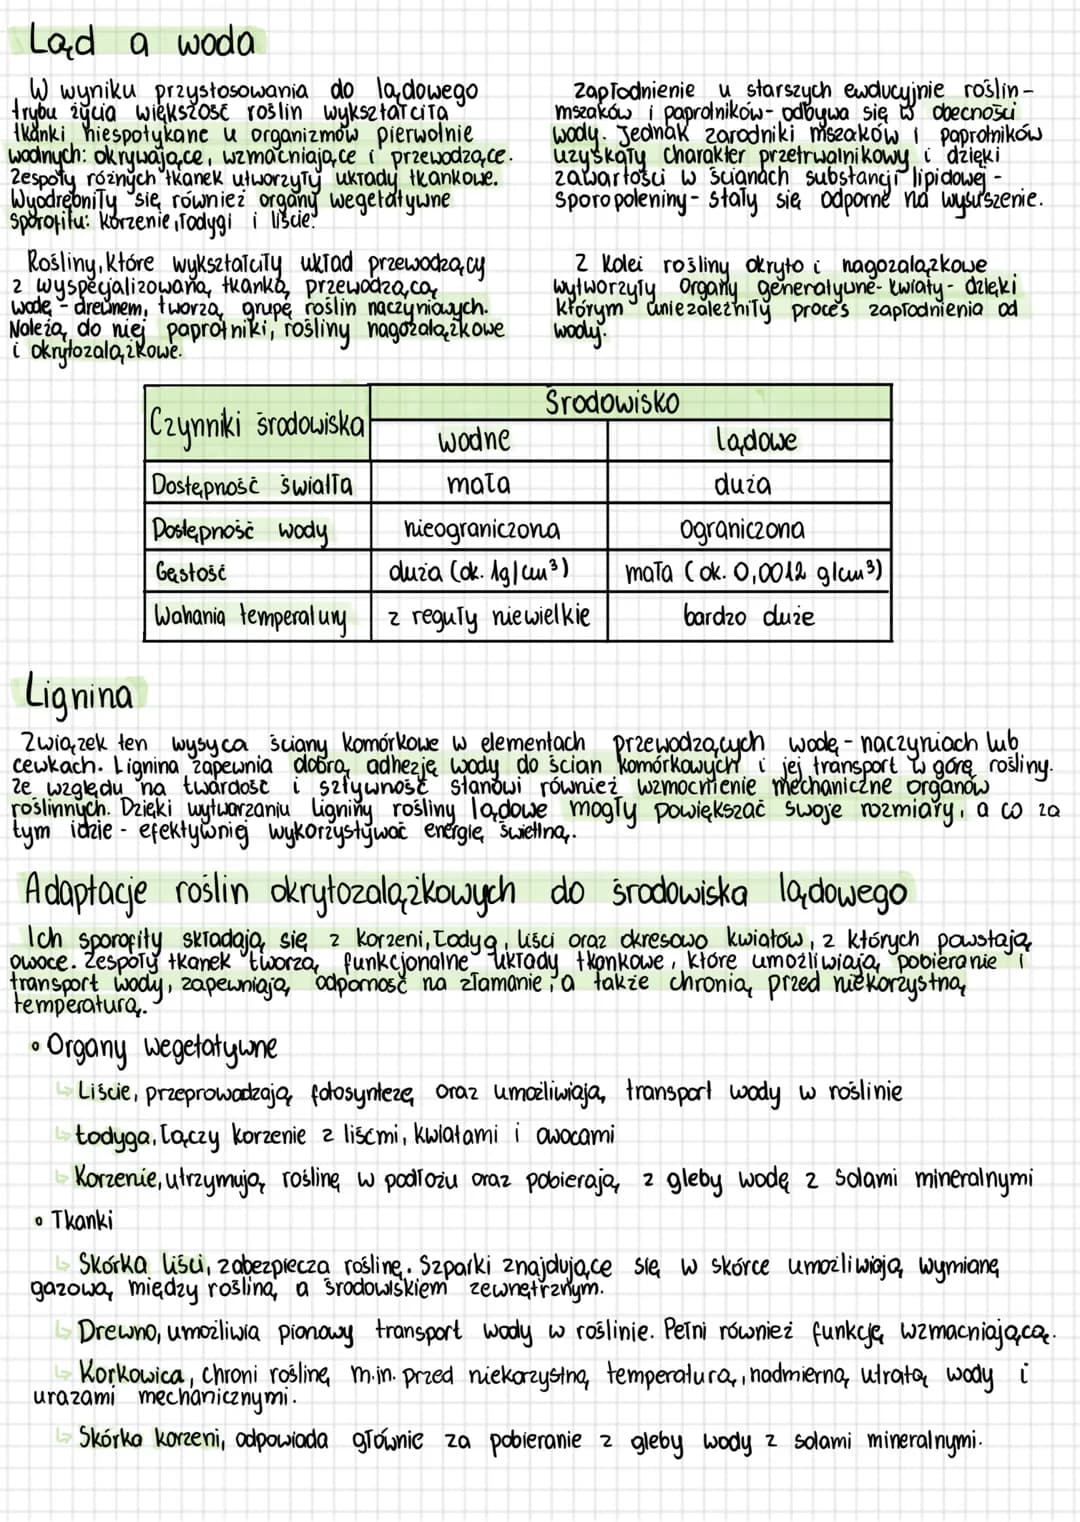 Ląd a woda
W wyniku przystosowania do lądowego
trybu życia większość roślin wykształciła
tkanki niespotykane u organizmów pierwotnie
wodnych: okrywające, wzmacniające i przewodzące.
Zespoły różnych tkanek utworzyły układy tkankowe.
Wyodrębniły się również organy wegetatywne
sporofitu: korzenie, łodygi i liście.
Rośliny, które wykształciły układ przewodzący
z wyspecjalizowaną tkanką przewodzącą
wodę - drewnem, tworzą grupę roślin naczyniowych.
Należą do niej paprotniki, rośliny nagozalążkowe
i okrytozalążkowe.
Zapłodnienie u starszych ewolucyjnie roślin -
mszaków i paprotników - odbywa się w obecności
wody. Jednak zarodniki mszaków i paprotników
uzyskały charakter przetrwalnikowy i dzięki
zawartości w ścianach substancji lipidowej -
sporopoleniny - stały się odporne na wysuszenie.
Z kolei rośliny okryto i nagozalążkowe
wytworzyły organy generatywne - kwiaty - dzięki
którym uniezależniły proces zapłodnienia od
wody.
Czynniki środowiska
Środowisko
wodne lądowe
Dostępność światła mała duża
Dostępność wody nieograniczona ograniczona
Gęstość duża (ok. 1g/cm³) mała (ok. 0,0012 g/cm³)
Wahania temperatury z reguły niewielkie bardzo duże
Lignina
Związek ten wysyca ściany komórkowe w elementach przewodzących wodę - naczyniach lub
cewkach. Lignina zapewnia dobrą adhezję wody do ścian komórkowych i jej transport w górę rośliny.
Ze względu na twardość i sztywność stanowi również wzmocnienie mechaniczne organów
roślinnych. Dzięki wytwarzaniu ligniny rośliny lądowe mogły powiększać swoje rozmiary, a co za
tym idzie - efektywniej wykorzystywać energię świetlną.
Adaptacje roślin okrytozalążkowych do środowiska lądowego
Ich sporofity składają się z korzeni, łodyg, liści oraz okresowo kwiatów, z których powstają
owoce. Zespoły tkanek tworzą funkcjonalne układy tkankowe, które umożliwiają pobieranie i
transport wody, zapewniają odporność na złamanie, a także chronią przed niekorzystną
temperaturą.
• Organy wegetatywne
↳ Liście, przeprowadzają fotosyntezę oraz umożliwiają transport wody w roślinie
↳ Łodyga, łączy korzenie z liśćmi, kwiatami i owocami
↳ Korzenie, utrzymują roślinę w podłożu oraz pobierają z gleby wodę z solami mineralnymi
• Tkanki
↳ Skórka liści, zabezpiecza roślinę. Szparki znajdujące się w skórce umożliwiają wymianę
gazową między rośliną a środowiskiem zewnętrznym.
↳ Drewno, umożliwia pionowy transport wody w roślinie. Pełni również funkcję wzmacniającą.
↳ Korkowica, chroni roślinę m.in. przed niekorzystną temperaturą, nadmierną utratą wody i
urazami mechanicznymi.
↳ Skórka korzeni, odpowiada głównie za pobieranie z gleby wody z solami mineralnymi.